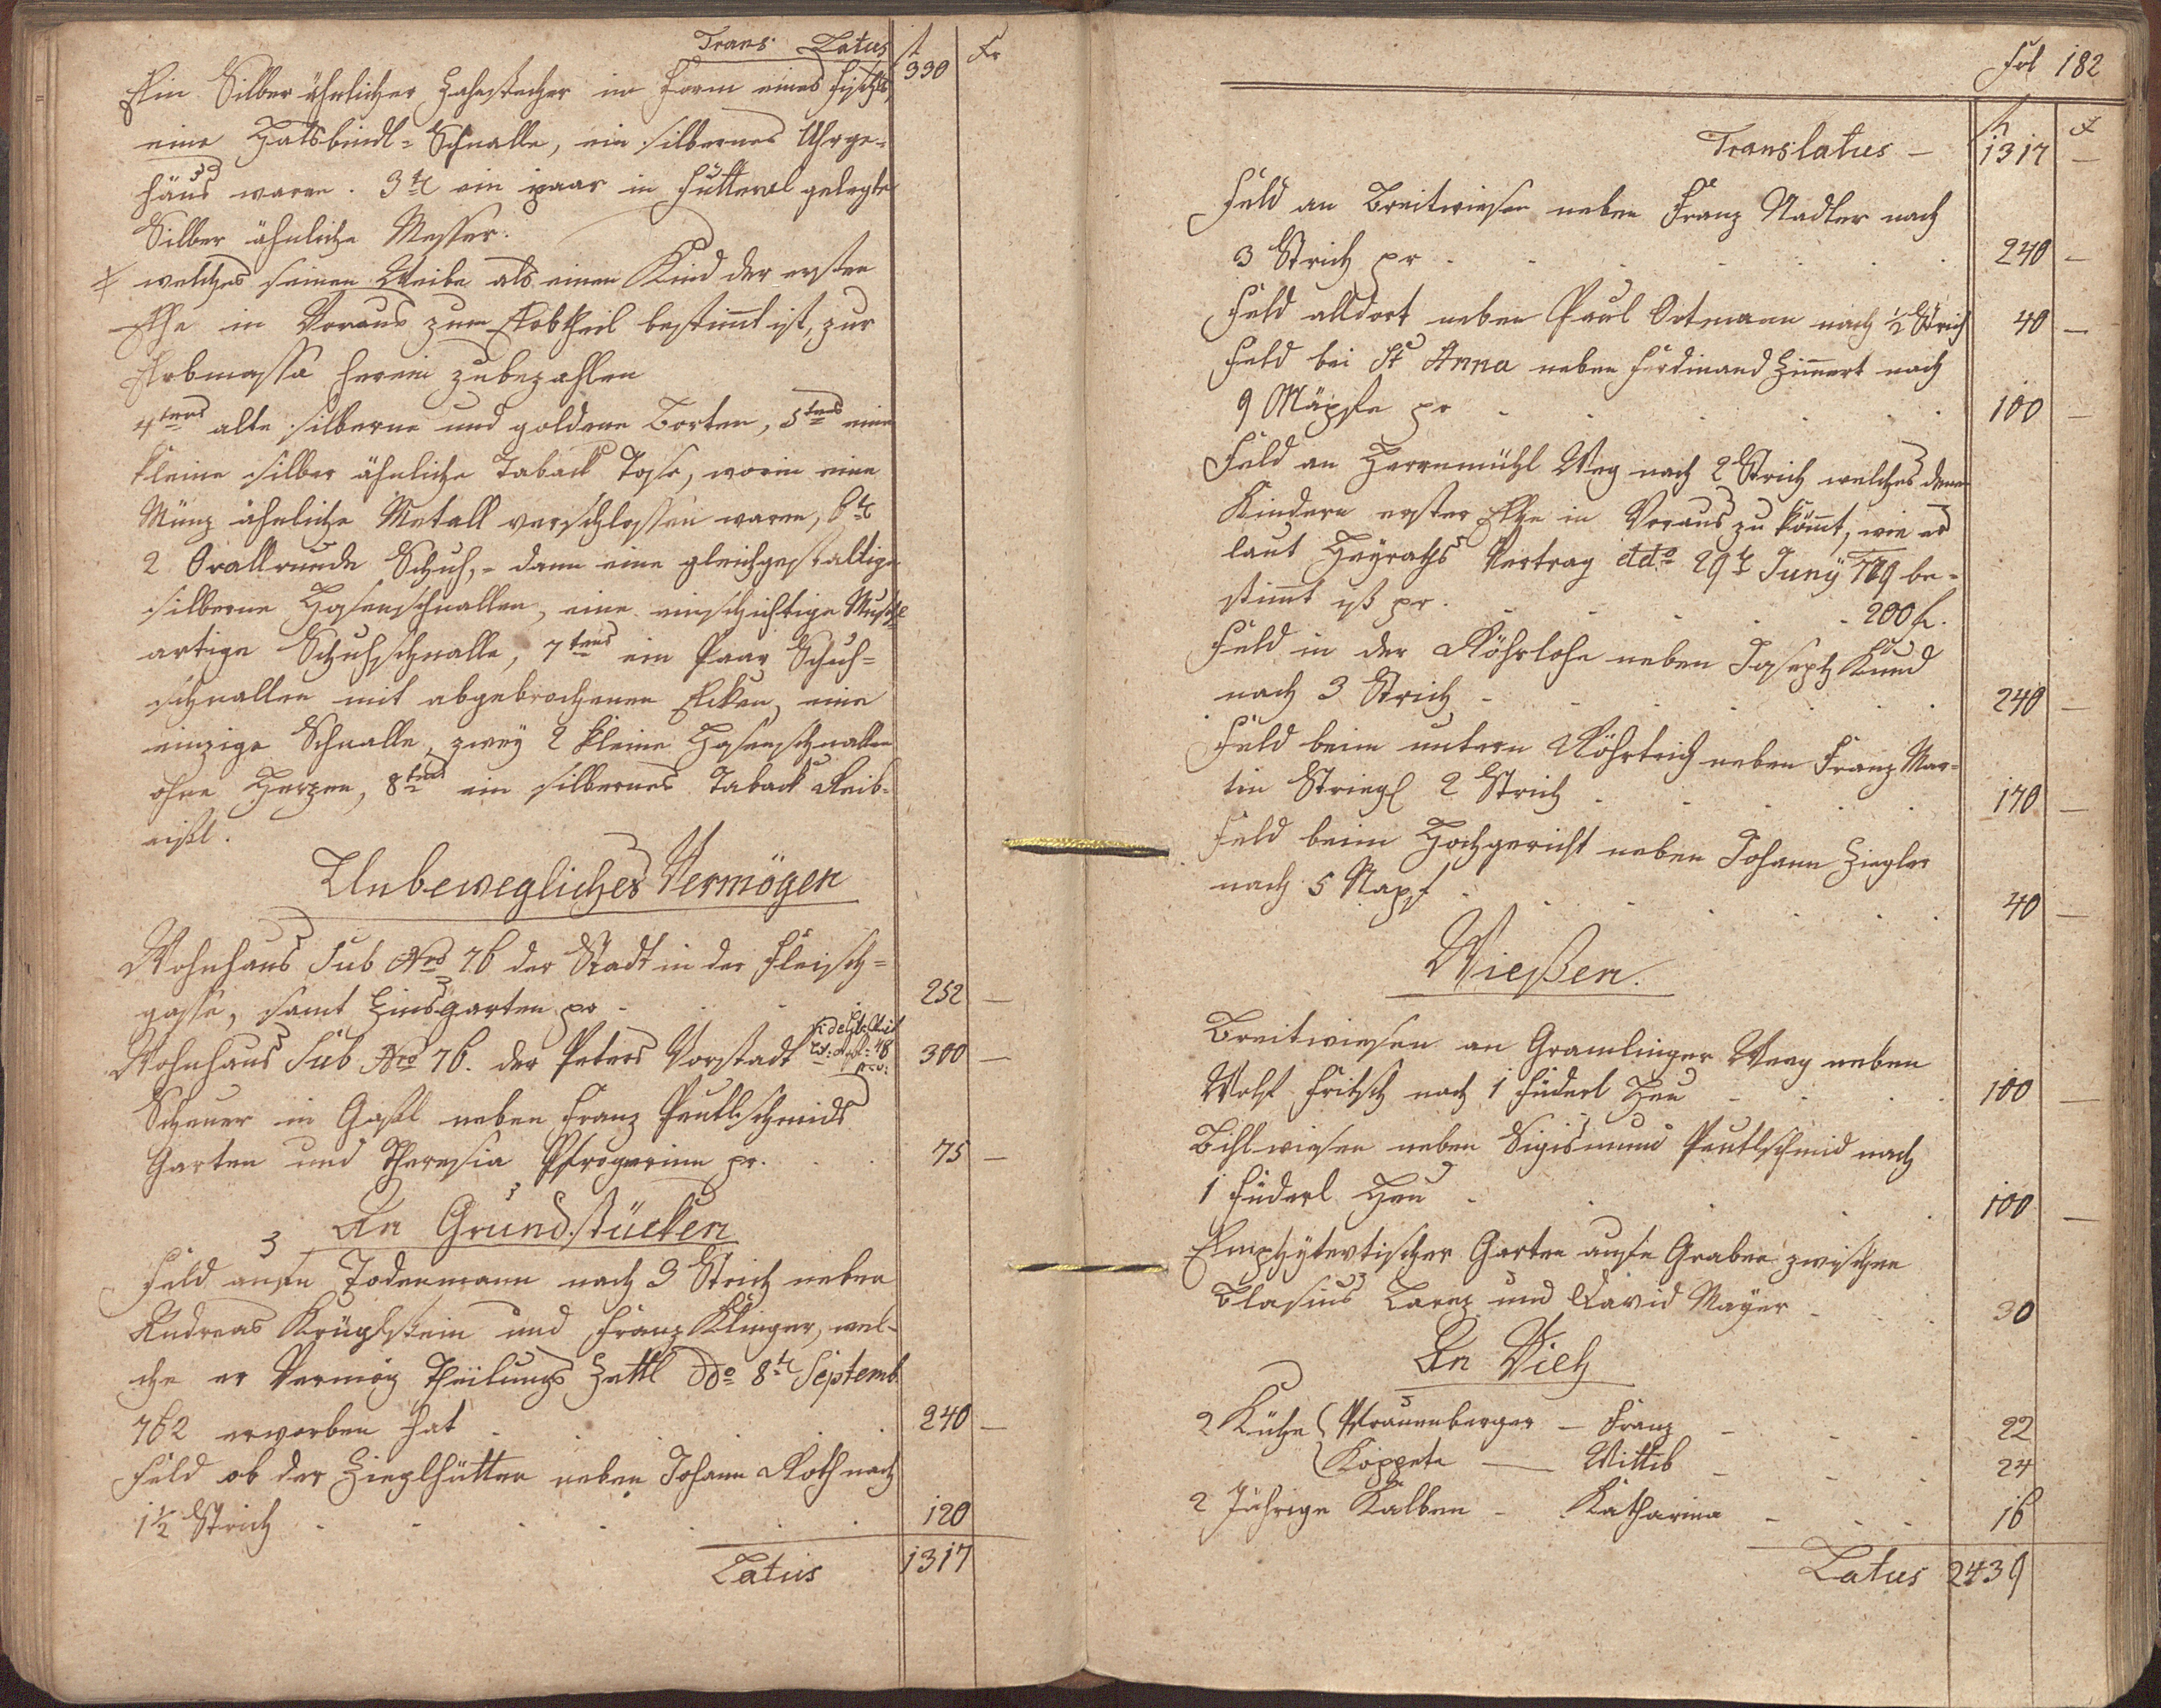 Trans Latus f 330 xr
Ein Silber ähnlicher Zahnstecher in Form eines Fischls,
eine Halsbindl=Schnalle, ein silbernes Uhrge=
häus waren. 3tl ein paar in Futteral gelegte
Silber ähnliche Messer.
welches seinen Weibe als einen Kind der ersten
Ehe in Voraus zum Erbtheil bestimt ist, zur
Erbmassa herein zubezahlen
4tens alte silberne und goldene Borten, 5tens eine
kleine silber ähnliche Taback Dose, worin eine
Münz ähnliche Metall verschlossen waren, 6tl
2 Orallrunde Schuh,- dann eine gleichgestaltige
silberne Hosenschnallen, eine einschichtige
artige Schuhschnalle, 7tens ein Paar Schuh=
schnallen mit abgebrochenen Ecken, eine
einzige Schnalle, zwey 2 kleine Hosenschnallen
ohne Herzen, 8tens ein silbernes Taback Reib=
eisl.
Unbewegliches Vermögen
Wohnhaus Sub Nro 76 der Stadt in der Fleisch=
gasse, samt Zinsgarten pr 252 —
Wohnhaus Sub Nro 76. der Peters Vorstadt 300 —
Scheuer in Gassl neben Franz Peutlschmids
Garten und Theresia Pfrognerinn pr. 75 —
An Grundstücken
Feld aufn Todenmann nach 3 Strich neben
Andreas Krüglstein und Franz Klinger, wel=
che er Vermög Theilungs Zettl ddo 8tl Septemb
762 erworben hat 240 —
Feld ob der Zieglhütten neben Johann Roth nach
1½ Strich 120
Latus 1317
Fol 182
f x
Translatus — 1317 —
Feld an Breitwiesen neben Franz Nadler nach
3 Strich pr 240 —
Feld alldort neben Paul Ortmann nach ½ Strich 40 —
Feld bei St Anna neben Ferdinand Zimert nach
9 Mäpsle pr 100 —
Feld an Herrnmühl Weg nach 2 Strich welches denen
Kindern erster Ehe in Voraus zu kömt, wie es
laut Heyraths Vertrag ddo 29tl Juny be=
stimt ist pr. 200 f.
Feld in der Röhrlohe neben Joseph Kund
nach 3 Strich 240 —
Feld beim untern Röhrteich neben Franz Mar=
tin Striegl 2 Strich 170 —
Feld beim Hochgericht neben Johann Ziegler
nach 5 Napf 40 —
Wießen.
Breitwiesen an Gramlinger Weeg neben
Wolf Fritsch nach 1 Füderl Heu 100 —
Bihlwiesen neben Sigismund Peutlschmid nach
1 Füderl Heu 100 —
Emphytevtischer Garten aufn Graben zwischen
Blasius Lorez und David Mayer 30
An Vieh
2 Kühe Pfrauenberger — Franz 22
Koppete — Wittib 24
2 Jährige Kalben - Katharina 16
Latus 2439